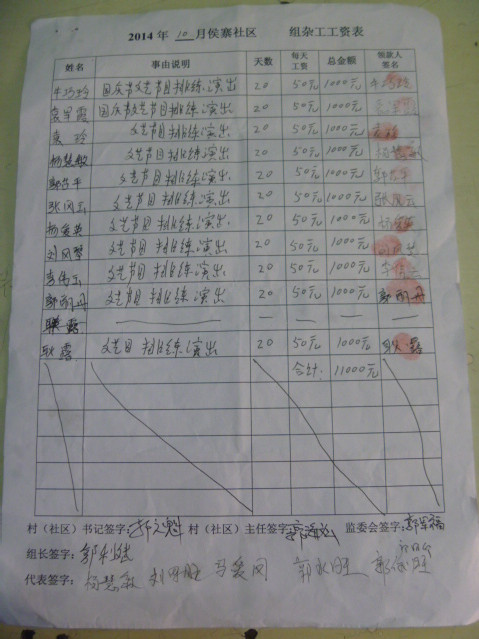 2014 年 10 月侯寨社区 组杂工工资表
姓名 事由说明 天数 每天工资 总金额 领款人签名
国庆节文艺节目排练演出 20 50元 1000元
袁军霞 国庆节文艺节目排练演出 20 50元 1000元
袁玲 文艺节目排练演出 20 50元 1000元 袁玲
杨慧敏 文艺节目排练演出 20 50元 1000元 杨慧敏
文艺节目排练演出 20 50元 1000元
张凤云 文艺节目排练演出 20 50元 1000元 张凤云
文艺节目排练演出 20 50元 1000元
刘凤琴 文艺节目排练演出 20 50元 1000元
李伟云 文艺节目排练演出 20 50元 1000元
郭丽丹 文艺节目排练演出 20 50元 1000元 郭丽丹
耿露 文艺目排练演出 20 50元 1000元 耿露
合计 11000元
村（社区）书记签字： 村（社区）主任签字： 监委会签字：郭军福
组长签字：郭利锋
代表签字：杨慧敏 马爱风 郭永旺